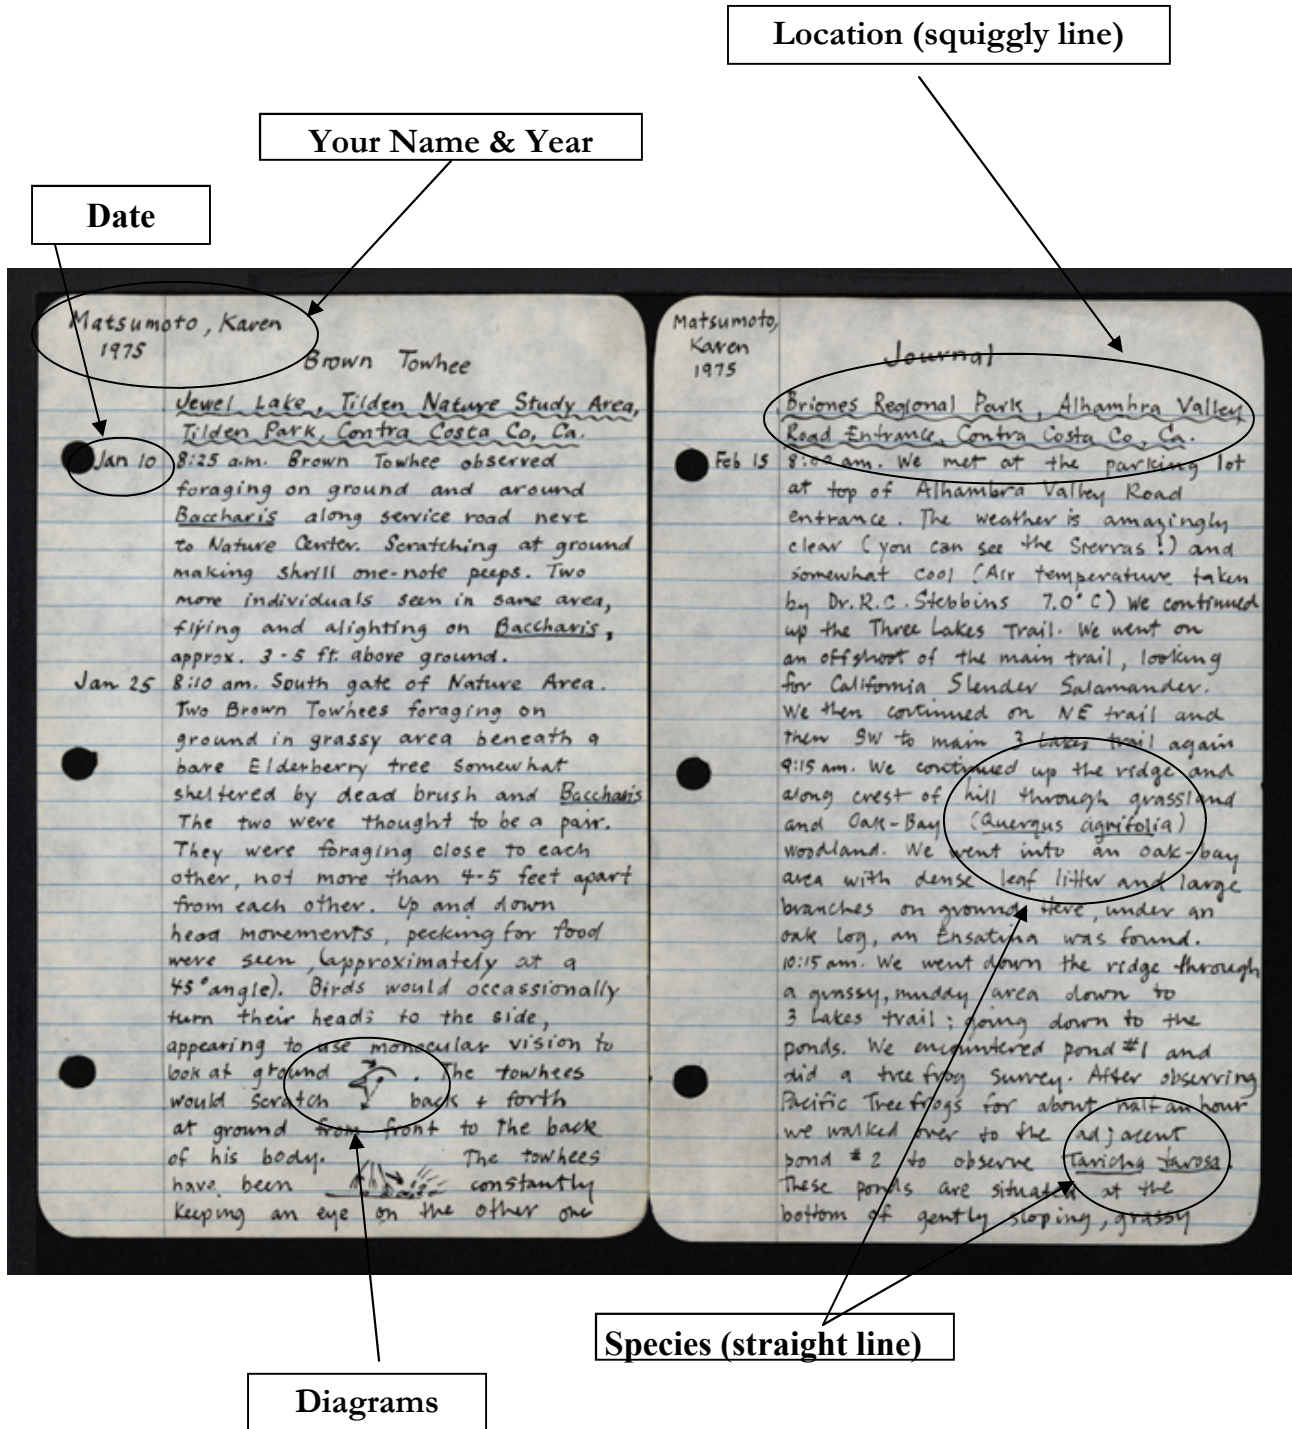 Location (squiggly line)
Your Name & Year
Date
Matsumoto, Karen
1975
Brown Towhee
Jewel Lake, Tilden Nature Study Area,
Tilden Park, Contra Costa Co, Ca.
Jan 10 8:25 a.m. Brown Towhee observed
foraging on ground and around
Baccharis along service road next
to Nature Center. Scratching at ground
making shrill one-note peeps. Two
more individuals seen in same area,
flying and alighting on Baccharis,
approx. 3-5 ft. above ground.
Jan 25 8:10 am. South gate of Nature Area.
Two Brown Towhees foraging on
ground in grassy area beneath a
bare Elderberry tree somewhat
sheltered by dead brush and Baccharis
The two were thought to be a pair.
They were foraging close to each
other, not more than 4-5 feet apart
from each other. Up and down
head movements, pecking for food
were seen, (approximately at a
45° angle). Birds would occassionally
turn their heads to the side,
appearing to use monocular vision to
look at ground . The towhees
would scratch back & forth
at ground from front to the back
of his body. The towhees
have been constantly
keeping an eye on the other one
Matsumoto,
Karen
1975
Journal
Briones Regional Park, Alhambra Valley
Road Entrance, Contra Costa Co, Ca.
Feb 15 8:00 am. We met at the parking lot
at top of Alhambra Valley Road
entrance. The weather is amazingly
clear (you can see the Sierras!) and
somewhat cool (Air temperature taken
by Dr. R.C. Stebbins 7.0° C) We continued
up the Three Lakes Trail. We went on
an offshoot of the main trail, looking
for California Slender Salamander.
We then continued on NE trail and
then SW to main 3 Lakes trail again
9:15 am. We continued up the ridge and
along crest of hill through grassland
and Oak-Bay (Querqus agrifolia)
woodland. We went into an oak-bay
area with dense leaf litter and large
branches on ground Here, under an
oak log, an Ensatina was found.
10:15 am. We went down the ridge through
a grassy, muddy area down to
3 Lakes trail; going down to the
ponds. We encountered pond #1 and
did a tree frog survey. After observing
Pacific Tree frogs for about half an hour
we walked over to the adjacent
pond #2 to observe Taricha tarosa.
These ponds are situated at the
bottom of gently sloping, grassy
Species (straight line)
Diagrams